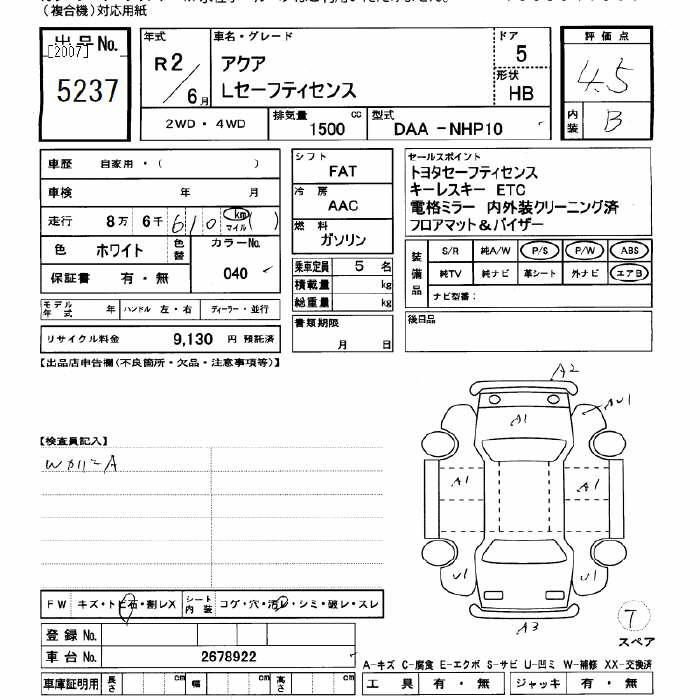 （複合機）対応用紙
出品No.
[2007]
5237
年式
R2/6月
車名・グレード
アクア
Lセーフティセンス
ドア
5
形状
HB
2WD・4WD
排気量 1500 cc
型式 DAA -NHP10
評価点
4.5
内装
B
車歴 自家用・( )
車検 年 月
走行 8万 6千 610 km マイル ( )
色 ホワイト 色替 カラーNo.
保証書 有・無 040
モデル年式 年 ハンドル 左・右 ディーラー・並行
リサイクル料金 9,130 円 預託済
シフト
FAT
冷房
AAC
燃料
ガソリン
乗車定員 5 名
積載量 kg
総重量 kg
書類期限
月 日
セールスポイント
トヨタセーフティセンス
キーレスキー ETC
電格ミラー 内外装クリーニング済
フロアマット&バイザー
装備品
S/R 純A/W P/S P/W ABS
純TV 純ナビ 革シート 外ナビ エアB
ナビ型番：
後日品
【出品店申告欄(不良箇所・欠品・注意事項等)】
【検査員記入】
A2
A1
AU1
A1
A1
U1
U1
A3
FW キズ・トビ石・割レX シート内装 コゲ・穴・汚レ・シミ・破レ・スレ
登録No.
車台No. 2678922
車庫証明用 長さ cm 幅 cm 高さ cm
T
スペア
A-キズ C-腐食 E-エクボ S-サビ U-凹ミ W-補修 XX-交換済
工具 有・無 ジャッキ 有・無